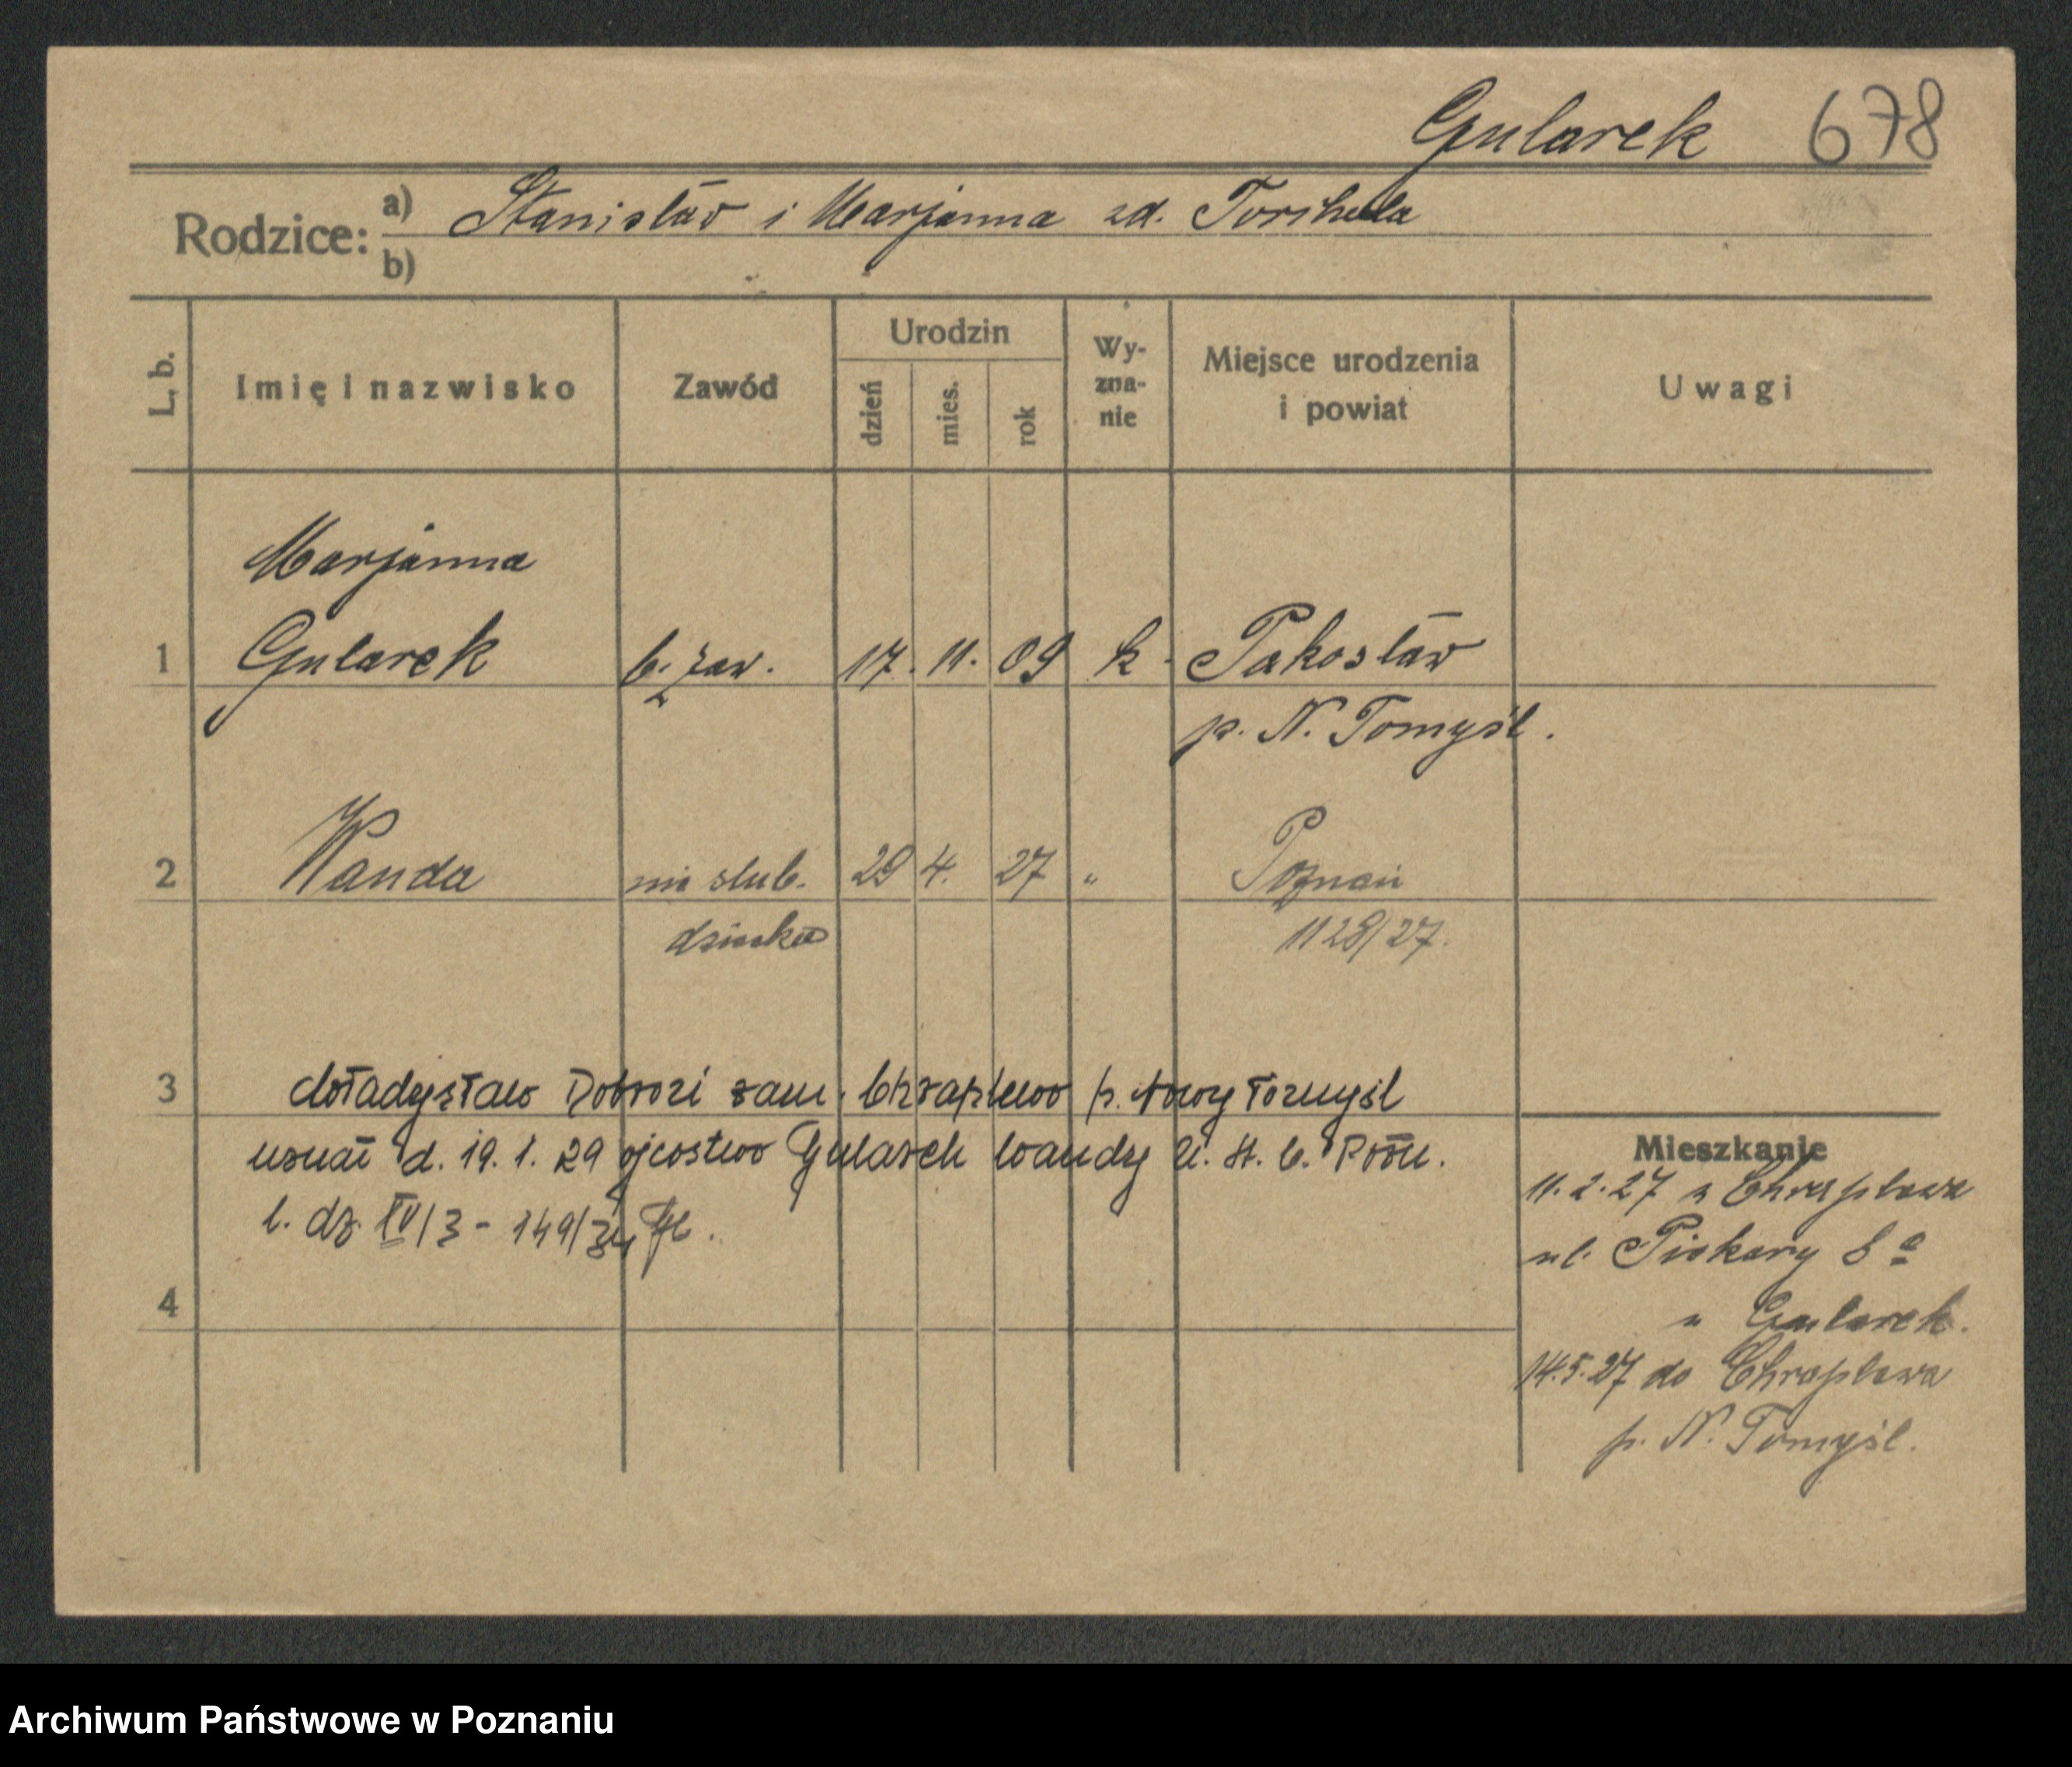 Gularek 678
Rodzice: a) Stanisław i Marjanna zd.
b)
L. b. Imię i nazwisko Zawód Urodzin dzień mies. rok Wy-zna-nie Miejsce urodzenia i powiat Uwagi
Marjanna
1 Gularek b. zaw. 17. 11. 09 k. Pakosław
p. N. Tomyśl.
2 Wanda nie ślub. 29 4. 27 " Poznań
dziecko 1128/27.
3 Władysław zam. Chraplewo p. Nowy Tomyśl
uznał d. 19. 1. 29 ojcostwo Gularek Wandy U. St. C. Pozn.
l. dz. IV/3 - 149/34
4
Mieszkanie
11. 2. 27 z Chraplewa
ul. Piekary 8
u Gularek.
14. 5. 27 do Chraplewa
p. N. Tomyśl.
Archiwum Państwowe w Poznaniu